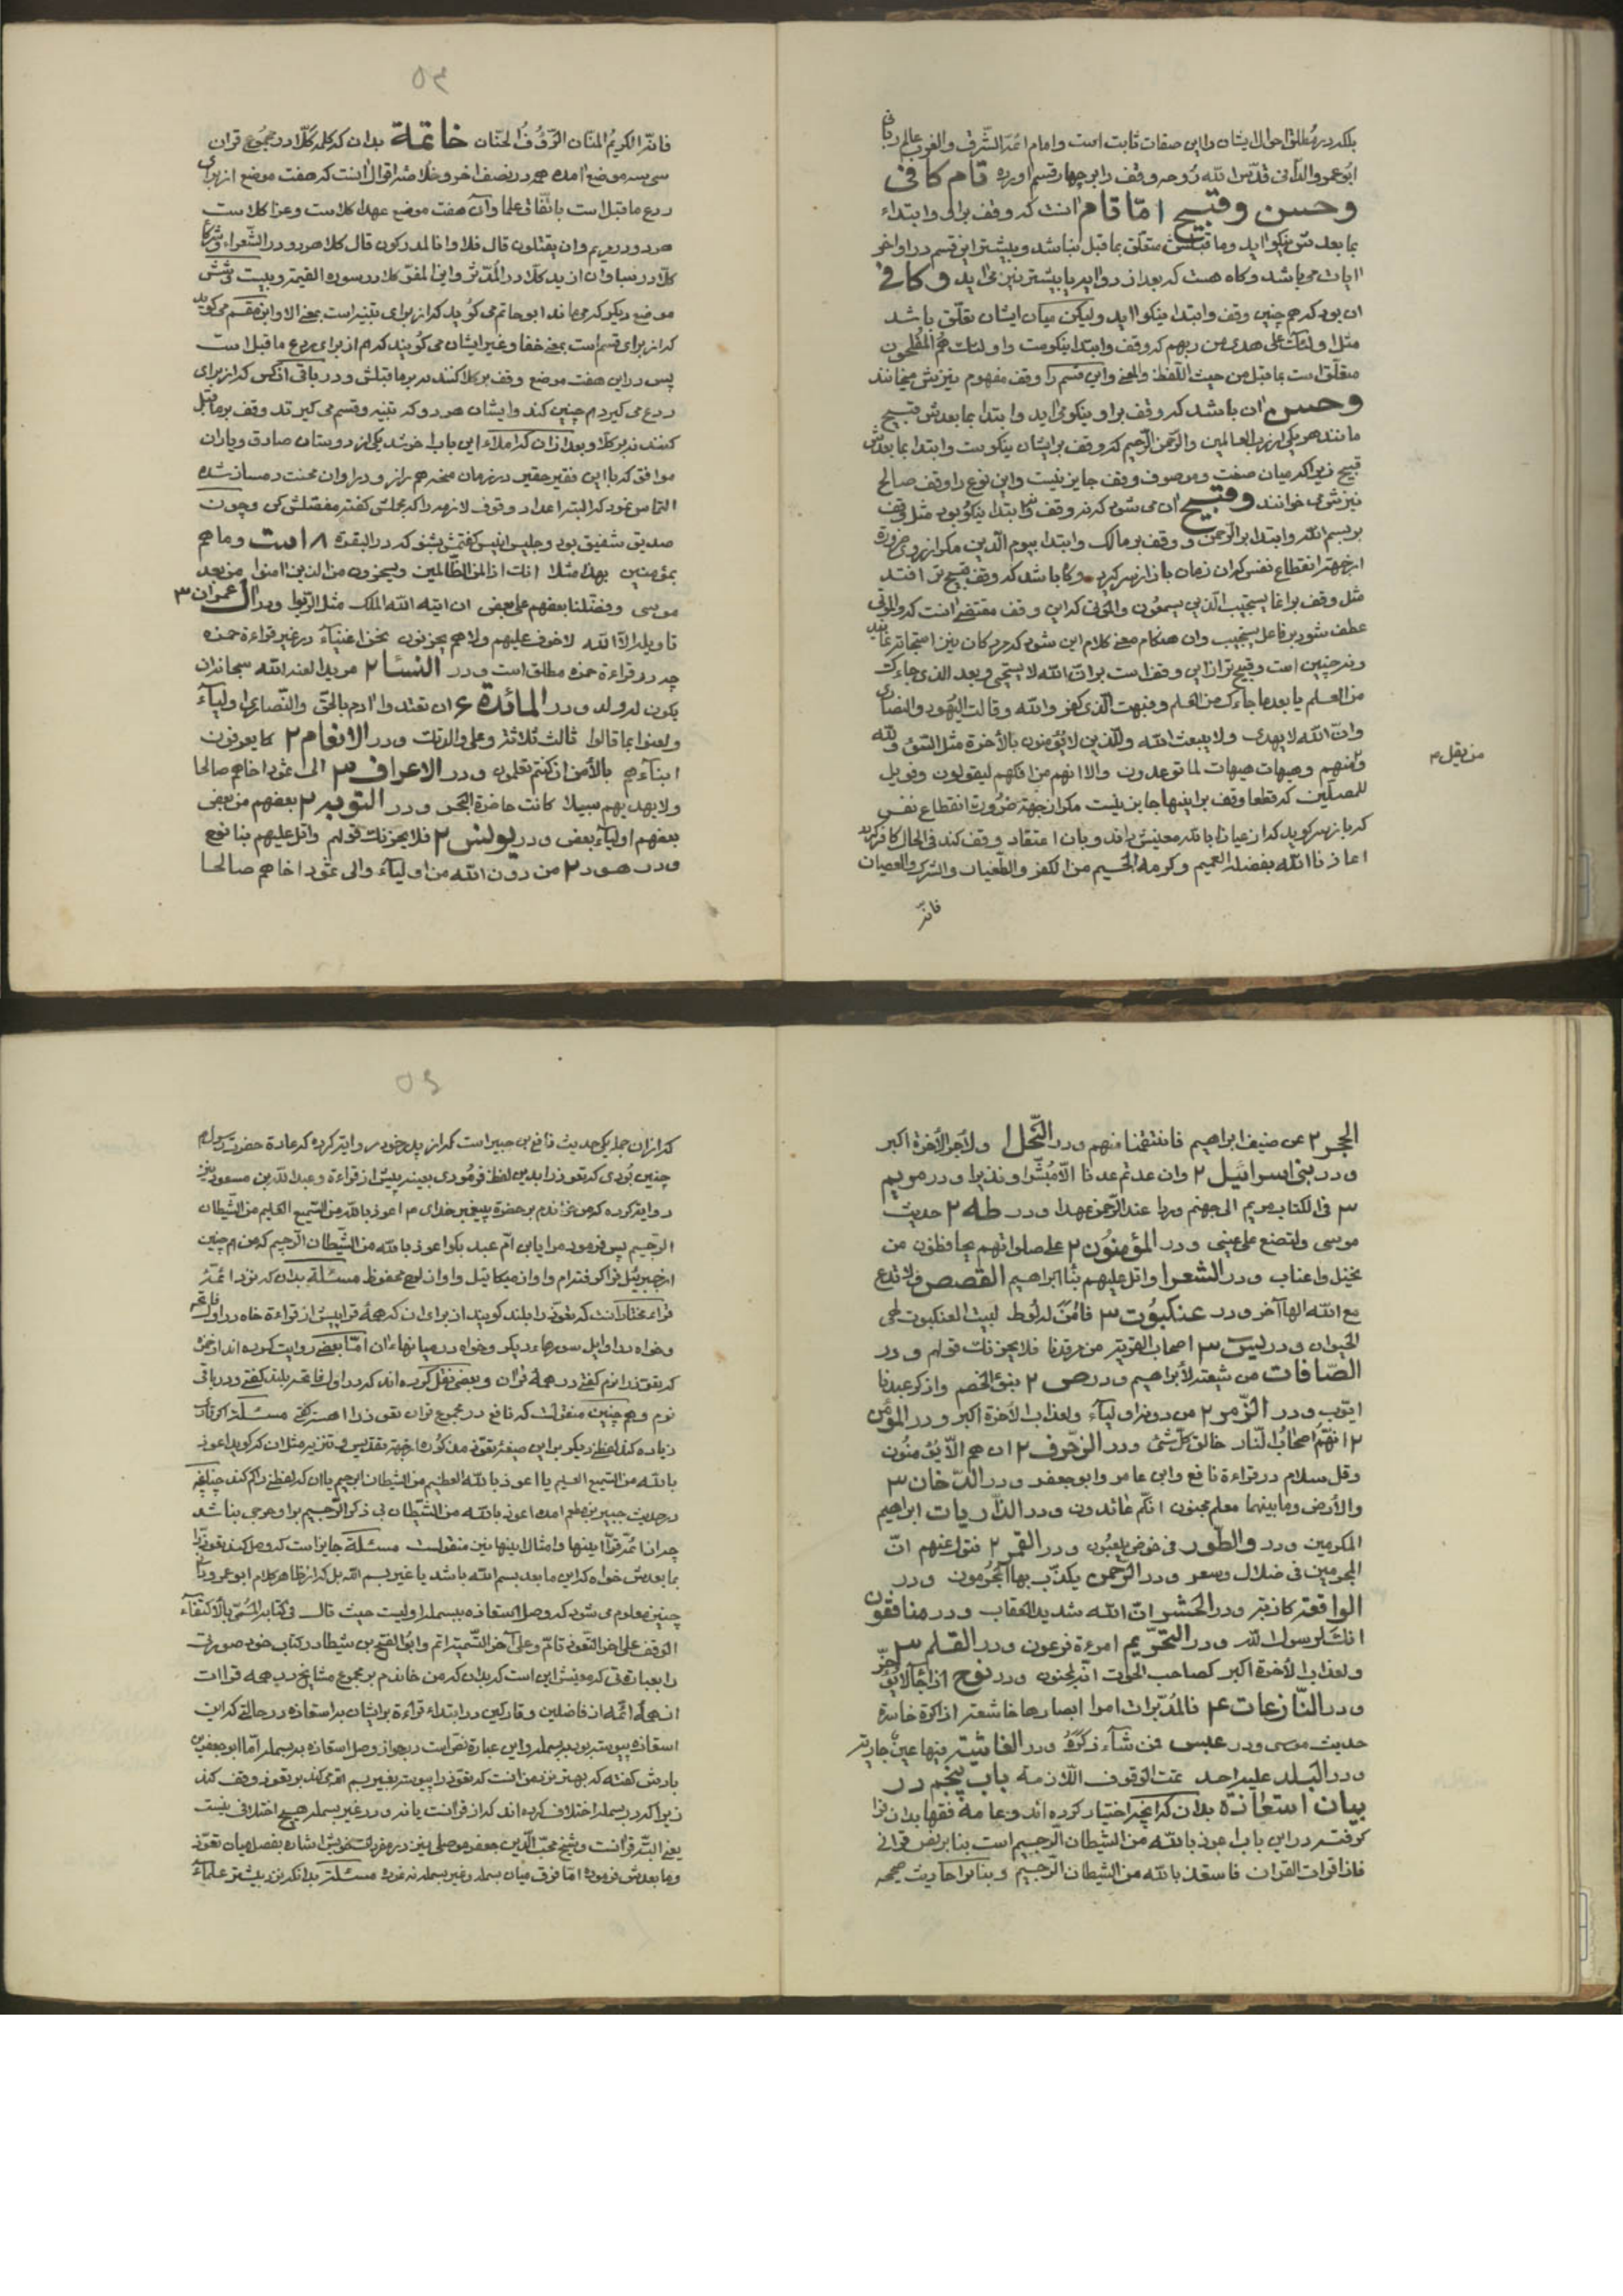 بلکه در مطلق احوال ایشان را این صفات ثابت است و امام ائمة الشرق والغرب عالم ربانی
ابو عمرو الدانی قدس الله روحه وقف را بر چهار قسم اورده تام کافی
وحسن وقبیح اما تام انست که وقف برای وابتداء
بما بعدش نیکو اید وما قبلش متعلق بما قبل نباشد وبیشتر این قسم در اواخر
ایات می باشد وکاه هست که بعد از دو ایه یا بیشتر نیز می اید وکافی
ان بود که هم چنین وقف وابتدا نیکو اید ولیکن میان ایشان تعلق باشد
مثل اولئك على هدى من ربهم که وقف وابتدا نیکوست واولئك هم المفلحون
متعلق است بما قبل من حیث اللفظ والمعنی واین قسم را وقف مفهوم نیزش میخوانند
وحسن ان باشد که وقف براو نیکو می اید وابتدا بما بعدش قبیح
مانند هر یکی از رب العالمین والرحمن الرحیم که وقف بر ایشان نیکوست وابتدا بما بعدش
قبیح زیرا که میان صفت وموصوف وقف جایز نیست واین نوع را وقف صالح
نیزش می خوانند وقبیح ان می شود که نه وقف نه ابتدا نیکو بود مثل وقف
بر بسم الله وابتدا بر الرحمن و وقف بر مالك وابتدا بیوم الدین مکر از روی ضرورة
از جهة انقطاع نفس که ان زمان باز از سر کیرد وکاه باشد که وقف قبیح تر افتد
مثل وقف بر انما یستجیب الذین یسمعون والموتی که این وقف مقتضی انست که والموتی
عطف شود بر فاعل یستجیب وان هنکام معنی کلام این شود که مردکان نیز استجابة نمایند
ونه چنین است وقبیح تر از این وقف است بر ان الله لا یستحیی وبعد الذی جاءك
من العلم یا بعد ما جاءك من العلم وفبهت الذی کفر والله وقالت الیهود والنصاری
وان الله لا یهدی ولا یبعث الله وللذین لا یؤمنون بالاخرة مثل السوء ولله
ومنهم وهیهات هیهات لما توعدون والا انهم من افکهم لیقولون وفویل
للمصلین که قطعا وقف بر اینها جایز نیست مکر از جهة ضرورت انقطاع نفس
که باز سر کوید که از عیاذا بالله معنیش داند وبان اعتقاد وقف کند فی الحال کافر کردد
اعاذنا الله بفضله العمیم وکرمه الجسیم من الکفر والطغیان والشرك والعصیان
فانه
من یقل م
٥٣
فانه الکریم المنان الرؤف الحنان خاتمة بدان که کلمه کلا در مجموع قران
سی سه موضع امده همه در نصف اخر وخلاصه اقوال انست که هفت موضع از برای
ردع ما قبل است باتفاق علما وان هفت موضع عهدا کلا ست وعزا کلا ست
هر دو در مریم وان یقتلون قال فلا وانا لمدرکون قال کلا هر دو در الشعراء وشرکاء
کلا در سبا وان ازید کلا در المدثر واین المفر کلا در سوره القیمة وبیست شش
موضع دیکر که می ماند ابو حاتم می کوید که از برای تنبیه است بمعنی الا وابن مقسم می کوید
که از برای قسم است بمعنی حقا وغیر ایشان می کویند که هم از برای ردع ما قبل است
پس در این هفت موضع وقف بر کلا کنند نه بر ما قبلش ودر باقی انکس که از برای
ردع می کیرد هم چنین کند وایشان هر دو که تنبیه وقسم می کیرند وقف بر ما قبل
کنند نه بر کلا وبعد از ان که املاء این باب اخر شد یکی از دوستان صادق ویاران
موافق که با این فقیر حقیر در زمان محنه هم راز ودر اوان محنت دمساز شده
التماس نمود که البته اعداد وقوف لازمه را که مجلش کفته مفصلش کن وچون
صدیق شفیق بود وجلیس انیس کفتمش بشنو که در البقرة ٨ است وما هم
بمؤمنین بهذا مثلا انك اذا لمن الظالمین ویسخرون من الذین امنوا من بعد
موسی وفضلنا بعضهم علی بعض ان ایته الله الملك مثل الربوا ودر ال عمران ٣
تاویله الا الله لا خوف علیهم ولا هم یحزنون نحن اغنیاء در غیر قراءة حمزه
چه در قراءة حمزه مطلق است ودر النساء ٢ مریدا لعنه الله سبحانه ان
یکون له ولد ودر المائدة ٤ ان تعتدوا ادم بالحق والنصاری اولیاء
ولعنوا بما قالوا ثالث ثلاثة وعلی والدتك ودر الانعام ٢ کما یعرفون
ابناءهم بالامن ان کنتم تعلمون ودر الاعراف ٣ الی ثمود اخاهم صالحا
ولا یهدیهم سبیلا کانت حاضرة البحر ودر التوبه ٢ بعضهم من بعض
بعضهم اولیاء بعض ودر یونس ٢ فلا یحزنك قولهم واتل علیهم نبا نوح
ودر هود ٢ من دون الله من اولیاء والی ثمود اخاهم صالحا
الحجر ٢ عن ضیف ابراهیم فانتقمنا منهم ودر النحل ا ولاجر الاخرة اکبر
ودر بنی اسرائیل ٢ وان عدتم عدنا الا مبشرا ونذیرا ودر مریم
٣ فی الکتاب مریم الی جهنم وردا عند الرحمن عهدا ودر طه ٢ حدیث
موسی ولتصنع علی عینی ودر المؤمنون ٢ علی صلواتهم یحافظون من
نخیل واعناب ودر الشعرا واتل علیهم نبا ابراهیم القصص ولا تدع
مع الله الها اخر ودر عنکبوت ٣ فامن له لوط لبیت العنکبوت لهی
الحیوان ودر یس ٣ اصحاب القریة من مرقدنا فلا یحزنك قولهم ودر
الصافات من شیعته لابراهیم ودر ص ٢ نبؤ الخصم واذکر عبدنا
ایوب ودر الزمر ٢ من دونه اولیاء ولعذاب الاخرة اکبر ودر المؤمن
٢ انهم اصحاب النار خالق کل شئ ودر الزخرف ٢ ان هم الا یؤمنون
وقل سلام در قراءة نافع وابن عامر وابو جعفر ودر الدخان ٣
والارض وما بینهما معلم مجنون انکم عائدون ودر الذاریات ابراهیم
المکرمین ودر والطور فی خوض یلعبون ودر القمر ٢ فتول عنهم ان
المجرمین فی ضلال وسعر ودر الرحمن یکذب بها المجرمون ودر
الواقعة کاذبة ودر الحشر ان الله شدید العقاب ودر منافقون
انك لرسول الله ودر التحریم امرءة فرعون ودر القلم ٣
ولعذاب الاخرة اکبر کصاحب الحوت انه لمجنون ودر نوح اذا جاء لا یؤخر
ودر النازعات ٤ فالمدبرات امرا ابصارها خاشعة اذا کرة خاسرة
حدیث موسی ودر عبس فمن شاء ذکره ودر الغاشیة فیها عین جاریة
ودر البلد علیه احد تمت الوقوف اللازمة باب پنجم در
بیان استعاذة بدان که انچه اختیار کرده اند وعامة فقها بدان فرا
کوفته در این باب اعوذ بالله من الشیطان الرجیم است بنابر نص قرانی
فاذا قرات القران فاستعذ بالله من الشیطان الرجیم وبنابر احادیث صحیحه
٥٤
که از ان جمله یکی حدیث نافع بن جبیر است که از پدر خود روایة کرده که عادة حضرت رسول م
چنین بودی که تعوذ را بدین لفظ فرمودی بعینه پیش از قراءة وعبد الله بن مسعود نیز
روایة کرده که من بخواندم بر حضرة پیغمبر خدای م اعوذ بالله من السمیع العلیم من الشیطان
الرجیم پس فرمود مرا یا ابن ام عبد بکو اعوذ بالله من الشیطان الرجیم که من هم چنین
از جبرئیل فرا کرفته ام واو از میکائیل واو از لوح محفوظ مسئلة بدان که نزد ائمه
قراء مختار انست که تعوذ را بلند کویند از برای ان که همه قرا پیش از قراءة خواه در اول فاتحه
وخواه در اوایل سورهاء دیکر وخواه در میانهاء ان اما بعضی روایت کرده اند از حمزه
که تعوذ را نرم کفتی در همه قران وبعضی نقل کرده اند که در اول فاتحه بلند کفتی ودر باقی
نرم وهم چنین منقولست که نافع در مجموع قران تعوذ را اهسته کفتی مسئلة اکر قاری
زیاده کند لفظی دیکر بر این صیغه تعوذ مذکوره از جهة تقدیس وتنزیه مثل ان که کوید اعوذ
بالله من السمیع العلیم یا اعوذ بالله العظیم من الشیطان الرجیم یا ان که لفظی کم کند چنانچه
در حدیث جبیر بن مطعم امده اعوذ بالله من الشیطان بی ذکر الرجیم بر او حرجی نباشد
چه از ائمه قرا اینها وامثال اینها نیز منقولست مسئلة جایز است که وصل کند تعوذ را
بما بعدش خواه که این ما بعد بسم الله باشد یا غیر بسم الله بل که از ظاهر کلام ابو عمرو دانی
چنین معلوم می شود که وصل استعاذه ببسمله اولیست حیث قال فی کتابه المسمی بالاکتفاء
الوقف علی اخر التعوذ تام وعلی اخر التسمیة اتم وابو الفتح بن شیطا در کتاب خود
را بعبارتی که معنیش این است که بدان که من خاندم بر مجموع مشایخ در همه قراات
از همه ائمه از فاضلین وتارکین در ابتداء قراءة بر ایشان به استعاذه در حالتی که این
استعاذه پیوسته بود ببسمله واین عبارة نص است در جواز وصل استعاذه ببسمله اما ابو جعفر بن
باذش کفته که بهتر نزد من انست که تعوذ را پیوسته بغیر بسمله نمی کند بر تعوذ وقف کند
زیرا که در بسمله اختلاف کرده اند که از قرانست یا نه ودر غیر بسمله هیچ اختلافی نیست
یعنی البته قرانست وشیخ محب الدین جعفر موصلی نیز در مفردات خویش اشاره بفصل میان تعوذ
وما بعدش فرموده اما فرق میان بسمله وغیر بسمله نه نموده مسئلة بدانکه نزد بیشتر علماء